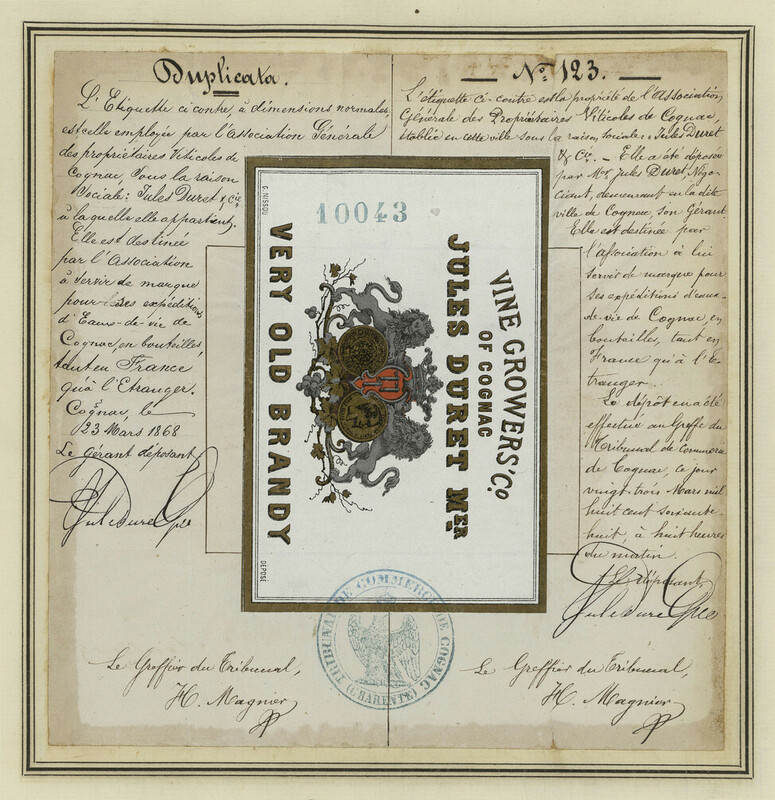 Duplicata.
L'Etiquette ci contre, à dimensions normales,
est celle employée par l'Association Générale
des propriétaires Viticoles de
Cognac, sous la raison
Sociale: Jules Duret & Cie
à laquelle elle appartient.
Elle est destinée
par l'Association
à servir de marque
pour ses expéditions
d'Eaux-de-vie de
Cognac, en bouteilles,
tant en France
qu'à l'Etranger.
Cognac, le
23 Mars 1868
Le gérant déposant
Jules Duret & Cie
Le Greffier du Tribunal,
H. Magnier
No. 123.
L'étiquette ci-contre est la propriété de l'Association
Générale des Propriétaires Viticoles de Cognac,
établie en cette ville sous la raison sociale: Jules Duret
& Cie. - Elle a été déposée
par Mr. Jules Duret, Négo-
ciant, demeurant en la dite
ville de Cognac, son Gérant
Elle est destinée par
l'association à lui
servir de marque pour
ses expéditions d'eaux-
de-vie de Cognac, en
bouteilles, tant en
France qu'à l'E-
tranger.
Le dépôt en a été
effectué au Greffe du
Tribunal de Commerce
de Cognac, ce jour
vingt trois Mars mil
huit cent soixante
huit, à huit heures
du matin.
déposant,
Jules Duret & Cie
Le Greffier du Tribunal,
H. Magnier
10043
VINE GROWERS' Co.
OF COGNAC
JULES DURET MGER
VERY OLD BRANDY
DÉPOSÉ
TRIBUNAL DE COMMERCE DE COGNAC
(CHARENTE)